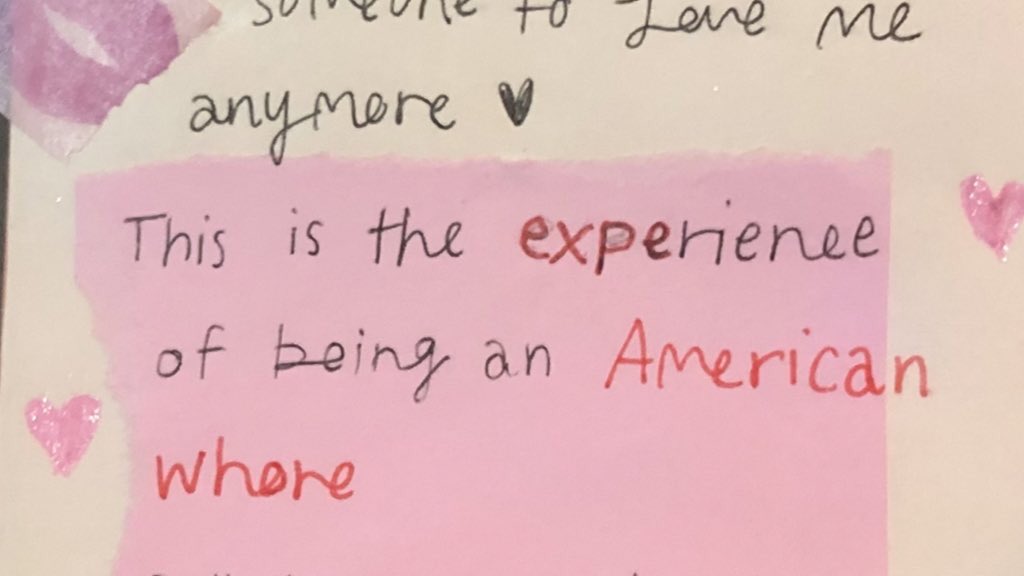 someone to Love me
anymore ♥
This is the experience
of being an American
whore